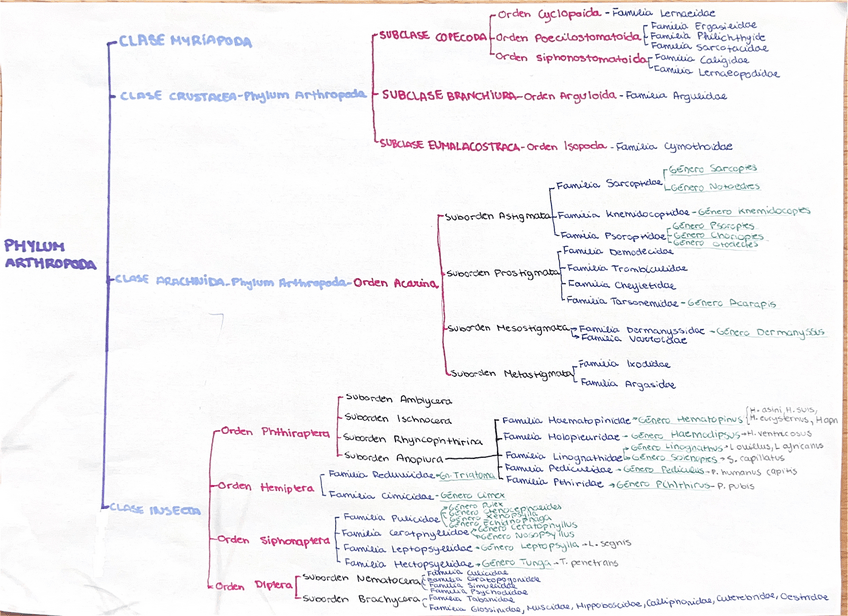 CLASE MYRIAPODA
CLASE CRUSTACEA-Phylum Arthropoda
SUBCLASE COPECODA
Orden Cyclopoida - Familia Lernaeidae
Orden Poecilostomatoida
Familia Ergasilidae
Familia Philichthyide
Familia Sarcotacidae
Orden Siphonostomatoida
Familia Caligidae
Familia Lernaeopodidae
SUBCLASE BRANCHIURA-Orden Arguloida - Familia Argulidae
SUBCLASE EUMALACOSTRACA-Orden Isopoda - Familia Cymothoidae
PHYLUM
ARTHROPODA
CLASE ARACHNIDA-Phylum Arthropoda-Orden Acarina
Suborden Astigmata
Familia Sarcoptidae
Género Sarcoptes
Género Notoedres
Familia Knemidocoptidae - Género Knemidocoptes
Familia Psoroptidae
Género Psoroptes
Género Chorioptes
Género Otodectes
Suborden Prostigmata
Familia Demodecidae
Familia Trombiculidae
Familia Cheyletidae
Familia Tarsonemidae - Género Acarapis
Suborden Mesostigmata
Familia Dermanyssidae - Género Dermanyssus
Familia Varroidae
Suborden Metastigmata
Familia Ixodidae
Familia Argasidae
CLASE INSECTA
Orden Phthiraptera
Suborden Amblycera
Suborden Ischnocera
Suborden Rhyncophthirina
Suborden Anoplura
Familia Haematopinidae - Género Hematopinus
H. asini, H. suis,
H. eurysternus, H.
Familia Holopleuridae - Género Haemodipsus - H. ventricosus
Familia Linognathidae
Género Linognathus - L. ovillus, L. africanus
Género Solenopes - S. capillatus
Familia Pediculidae - Género Pediculus - P. humanus capitis
Familia Pthiridae - Género Phthirus - P. pubis
Orden Hemiptera
Familia Reduviidae - Gn Triatoma
Familia Cimicidae - Género Cimex
Orden Siphonaptera
Familia Pulicidae
Género Pulex
Género Ctenocephalides
Género Xenopsylla
Género Echidnophaga
Familia Ceratphyllidae
Género Ceratophyllus
Género Nosopsyllus
Familia Leptopsyllidae - Género Leptopsylla - L. segnis
Familia Hectopsyllidae - Género Tunga - T. penetrans
Orden Diptera
Suborden Nematocera
Familia Culicidae
Familia Ceratopogonidae
Familia Simulidae
Familia Psychodidae
Suborden Brachycera
Familia Tabanidae
Familia Glossinidae, Muscidae, Hippoboscidae, Calliphoridae, Cuterebridae, Oestridae